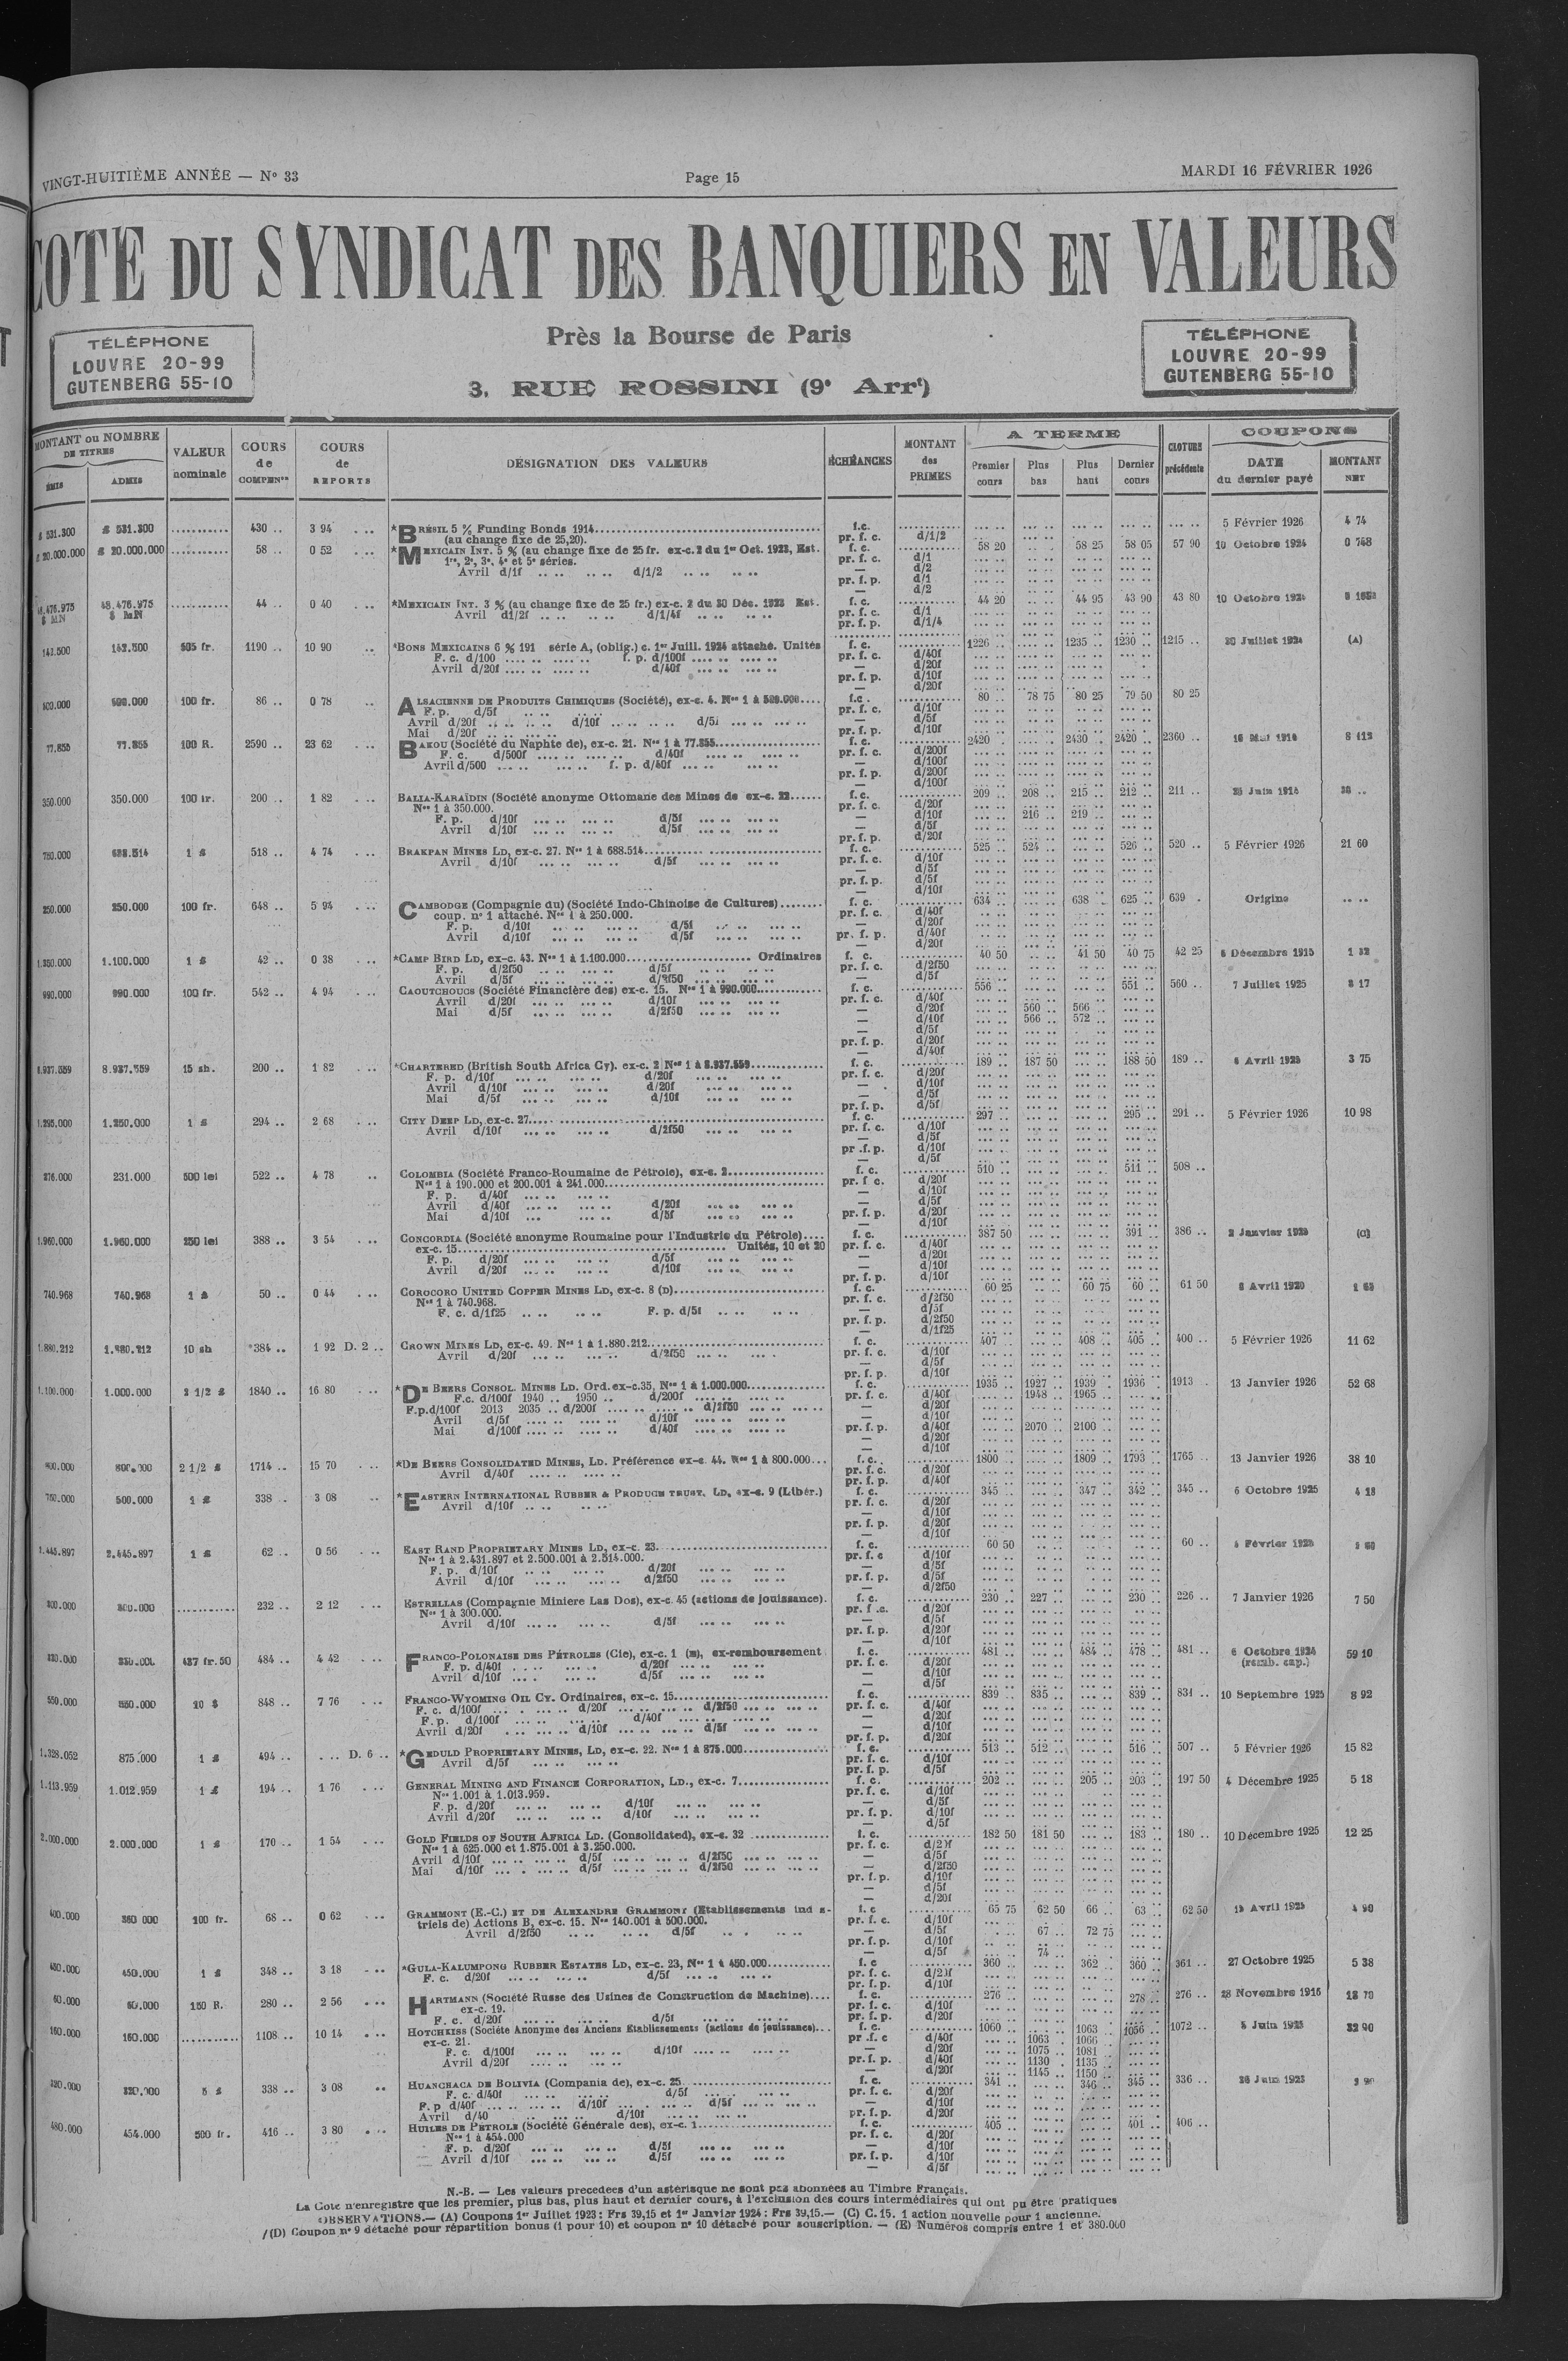 VINGT-HUITIÈME ANNÉE — N° 33
Page 15
MARDI 16 FÉVRIER 1926
COTE DU SYNDICAT DES BANQUIERS EN VALEURS
TÉLÉPHONE
LOUVRE 20-99
GUTENBERG 55-10
Près la Bourse de Paris
3, RUE ROSSINI (9e Arrt)
TÉLÉPHONE
LOUVRE 20-99
GUTENBERG 55-10
MONTANT ou NOMBRE DE TITRES
ÉMIS ADMIS
VALEUR nominale
COURS de COMPENon
COURS de REPORTS
DÉSIGNATION DES VALEURS
ÉCHÉANCES
MONTANT des PRIMES
A TERME
Premier cours Plus bas Plus haut Dernier cours
CLOTURE précédente
COUPONS
DATE du dernier payé
MONTANT NET
£ 531.300 £ 531.300 ........... 430 .. 3 94 . .. *BRÉSIL 5 % Funding Bonds 1914 f.c. 5 Février 1926 4 74
(au change fixe de 25,20). pr. f. c. d/1/2
£ 20.000.000 £ 20.000.000 ........... 58 .. 0 52 . .. *MEXICAIN INT. 5 % (au change fixe de 25 fr. ex-c. 2 du 1er Oct. 1923, Est. f. c. 58 20 58 25 58 05 57 90 10 Octobre 1924 0 748
1re, 2e, 3e, 4e et 5e séries. pr. f. c. d/1
Avril d/1f d/1/2
48.476.975 $ MN 48.476.975 $ MN ........... 44 .. 0 40 . .. *MEXICAIN INT. 3 % (au change fixe de 25 fr.) ex-c. 2 du 30 Déc. 1923 Est. f. c. 44 20 44 95 43 90 43 80 10 Octobre 1924
Avril d1/2f d/1/4f pr. f. c. d/1
pr. f. p. d/1/4
142.500 142.500 505 fr. 1190 .. 10 90 .. *BONS MEXICAINS 6 % 191 série A, (oblig.) c. 1er Juill. 1924 attaché. Unités f. c. 1226 .. 1235 .. 1230 .. 1215 .. 20 Juillet 1924 (A)
F. c. d/100 f. p. d/100f pr. f. c. d/40f
Avril d/20f d/40f — d/20f
500.000 500.000 100 fr. 86 .. 0 78 .. ALSACIENNE DE PRODUITS CHIMIQUES (Société), ex-c. 4. Nos 1 à 500.000 f.c. 80 .. 78 75 80 25 79 50 80 25
F. p. d/5f pr. f. c. d/10f
Avril d/20f d/10f d/5f — d/5f
Mai d/20f pr. f. p. d/10f
77.855 77.855 100 R. 2590 .. 23 62 . .. BAKOU (Société du Naphte de), ex-c. 21. Nos 1 à 77.855 f. c. 2420 .. 2430 .. 2420 .. 2360 ..
F. c. d/500f d/40f pr. f. c. d/200f
Avril d/500 f. p. d/40f — d/100f
350.000 350.000 100 fr. 200 .. 1 82 . .. BALIA-KARAÏDIN (Société anonyme Ottomane des Mines de ex-c. 22 f.c. 209 .. 208 .. 215 .. 212 .. 211 ..
Nos 1 à 350.000. pr. f. c. d/20f
F. p. d/10f d/5f — d/10f 216 .. 219 ..
Avril d/10f d/5f — d/5f
688.514 1 £ 518 .. 4 74 . .. BRAKPAN MINES LD, ex-c. 27. Nos 1 à 688.514 f. c. 525 .. 524 .. 526 .. 520 .. 5 Février 1926 21 60
Avril d/10f d/5f pr. f. c. d/10f
250.000 250.000 100 fr. 648 .. 5 94 . .. CAMBODGE (Compagnie du) (Société Indo-Chinoise de Cultures) f. c. 634 .. 638 .. 625 .. 639 . Origine
coup. n° 1 attaché. Nos 1 à 250.000. pr. f. c. d/40f
F. p. d/10f d/5f — d/20f
Avril d/10f d/5f pr. f. p. d/40f
1.100.000 1 £ 42 .. 0 38 . .. *CAMP BIRD LD, ex-c. 43. Nos 1 à 1.100.000 Ordinaires f. c. 40 50 41 50 40 75 42 25
F. p. d/2f50 d/5f pr. f. c. d/2f50
Avril d/5f d/2f50 — d/5f
990.000 990.000 100 fr. 542 .. 4 94 . .. CAOUTCHOUCS (Société Financière des) ex-c. 15. Nos 1 à 990.000 f. c. 556 .. 551 .. 560 .. 7 Juillet 1925 8 17
Avril d/20f d/10f pr. f. c. d/40f
Mai d/5f d/2f50 — d/20f 560 .. 566 ..
— d/10f 566 .. 572 ..
8.937.559 8.937.559 15 sh. 200 .. 1 82 . .. *CHARTERED (British South Africa Cy). ex-c. 2 Nos 1 à 8.937.559 f. c. 189 .. 187 50 188 50 189 .. 3 75
F. p. d/10f d/20f pr. f. c. d/20f
Avril d/10f d/20f — d/10f
Mai d/5f d/10f — d/5f
1.250.000 1 £ 294 .. 2 68 . .. CITY DEEP LD, ex-c. 27 f. c. 297 .. 295 .. 291 .. 5 Février 1926 10 98
Avril d/10f d/2f50 pr. f. c. d/10f
231.000 500 lei 522 .. 4 78 .. COLOMBIA (Société Franco-Roumaine de Pétrole), ex-c. 2 f. c. 510 .. 511 .. 508 ..
Nos 1 à 190.000 et 200.001 à 241.000 pr. f c. d/20f
F. p. d/40f — d/10f
Avril d/40f d/20f — d/5f
Mai d/10f d/5f pr. f. p. d/20f
1.960.000 1.960.000 250 lei 388 .. 3 54 . .. CONCORDIA (Société anonyme Roumaine pour l'Industrie du Pétrole) f. c. 387 50 391 .. 386 .. (C)
ex-c. 15 Unités, 10 et 20 pr. f. c. d/40f
F. p. d/20f d/5f — d/20f
Avril d/20f d/10f — d/10f
740.968 740.968 1 £ 50 .. 0 44 . .. COROCORO UNITED COPPER MINES LD, ex-c. 8 (D) f. c. 60 25 60 75 60 .. 61 50
Nos 1 à 740.968. pr. f. c. d/2f50
F. c. d/1f25 F. p. d/5f — d/5f
1.880.212 1.880.212 10 sh °384 .. 1 92 D. 2 .. CROWN MINES LD, ex-c. 49. Nos 1 à 1.880.212 f. c. 407 .. 408 .. 405 .. 400 .. 5 Février 1926 11 62
Avril d/20f d/2f50 pr. f. c. d/10f
1.100.000 1.000.000 2 1/2 £ 1840 .. 16 80 . .. *DE BEERS CONSOL. MINES LD. Ord. ex-c.35, Nos 1 à 1.000.000 f. c. 1935 .. 1927 .. 1939 .. 1936 . 1913 . 13 Janvier 1926 52 68
F.c. d/100f 1940 .. 1950 .. d/200f pr. f. c. d/40f 1948 .. 1965 ..
F.p.d/100f 2013 2035 .. d/200f d/2f50 — d/20f
Avril d/5f d/10f — d/10f
Mai d/100f d/40f pr. f. p. d/40f 2070 .. 2100 ..
800.000 2 1/2 £ 1714 .. 15 70 . .. *DE BEERS CONSOLIDATED MINES, LD. Préférence ex-c. 44. Nos 1 à 800.000 f. c. 1800 .. 1809 .. 1793 .. 1765 .. 13 Janvier 1926 38 10
Avril d/40f pr. f. c. d/20f
500.000 1 £ 338 .. 3 08 .. *EASTERN INTERNATIONAL RUBBER & PRODUCE TRUST, LD, ex-c. 9 (Libér.) f. c. 345 .. 347 .. 342 .. 345 .. 6 Octobre 1925 4 18
Avril d/10f pr. f. c. d/20f
2.445.897 1 £ 62 .. 0 56 . .. EAST RAND PROPRIETARY MINES LD, ex-c. 23 f. c. 60 50 60 ..
Nos 1 à 2.431.897 et 2.500.001 à 2.514.000. pr. f. c d/10f
F. p. d/10f d/20f — d/5f
Avril d/10f d/2f50 pr. f. p. d/5f
300.000 300.000 ........... 232 .. 2 12 . .. ESTRELLAS (Compagnie Miniere Las Dos), ex-c. 45 (actions de jouissance). f. c. 230 .. 227 .. 230 .. 226 .. 7 Janvier 1926 7 50
Nos 1 à 300.000. pr. f .c. d/20f
Avril d/10f d/5f — d/5f
437 fr.50 484 .. 4 42 . .. FRANCO-POLONAISE DES PÉTROLES (Cie), ex-c. 1 (E), ex-remboursement f. c. 481 .. 484 .. 478 .. 481 .. 6 Octobre 1924 59 10
F. p. d/40f d/20f pr. f. c. d/20f (remb. cap.)
Avril d/10f d/5f — d/10f
550.000 550.000 10 $ 848 .. 7 76 . .. FRANCO-WYOMING OIL CY. Ordinaires, ex-c. 15 f. c. 839 .. 835 .. 839 .. 831 .. 10 Septembre 1925 8 92
F. c. d/100f d/20f d/2f50 pr. f. c. d/40f
F. p. d/100f d/40f — d/20f
Avril d/20f d/10f d/5f — d/10f
1.328.052 875.000 1 £ 494 .. . .. D. 6 .. *GEDULD PROPRIETARY MINES, LD, ex-c. 22. Nos 1 à 875.000 f. c. 513 .. 512 .. 516 .. 507 .. 5 Février 1926 15 82
Avril d/5f pr. f. c. d/10f
1.113.959 1.012.959 1 £ 194 .. 1 76 . .. GENERAL MINING AND FINANCE CORPORATION, LD., ex-c. 7 f. c. 202 .. 205 .. 203 .. 197 50 4 Décembre 1925 5 18
Nos 1.001 à 1.013.959. pr. f. c. d/10f
F. p. d/20f d/10f — d/5f
Avril d/20f d/10f pr. f. p. d/10f
2.000.000 2.000.000 1 £ 170 .. 1 54 . .. GOLD FIELDS OF SOUTH AFRICA LD. (Consolidated), ex-c. 32 f. c. 182 50 181 50 183 .. 180 .. 10 Décembre 1925 12 25
Nos 1 à 625.000 et 1.875.001 à 3.250.000. pr. f. c. d/20f
Avril d/10f d/5f d/2f50 — d/5f
Mai d/10f d/5f d/2f50 — d/2f50
360 000 100 fr. 68 .. 0 62 . .. GRAMMONT (E.-C.) ET DE ALEXANDRE GRAMMONT (Etablissements Ind s- f. c 65 75 62 50 66 .. 63 .. 62 50 4 90
triels de) Actions B, ex-c. 15. Nos 140.001 à 500.000. pr. f. c. d/10f
Avril d/2f50 d/5f — d/5f 67 .. 72 75
pr. f. p. d/10f
— d/5f 74 ..
450.000 450.000 1 £ 348 .. 3 18 . .. *GULA-KALUMPONG RUBBER ESTATES LD, ex-c. 23, Nos 1 à 450.000 f. c 360 .. 362 .. 360 .. 361 .. 27 Octobre 1925 5 38
F. c. d/20f d/5f pr. f. c. d/20f
60.000 60.000 150 R. 280 .. 2 56 . .. HARTMANN (Société Russe des Usines de Construction de Machine) f. c. 276 .. 278 .. 276 ..
ex-c. 19. pr. f. c. d/10f
F. c. d/20f d/5f pr. f. p. d/20f
160.000 160.000 ........... 1108 .. 10 14 . .. HOTCHKISS (Société Anonyme des Anciens Etablissements (actions de jouissance) f. c. 1060 .. 1063 .. 1056 .. 1072 .. 32 90
ex-c. 21. pr .f. c d/40f 1063 .. 1066 ..
F. c. d/100f d/10f — d/20f 1075 .. 1081 ..
Avril d/20f pr. f. p. d/40f 1130 . 1135 ..
— d/20f 1145 .. 1150 ..
338 .. 3 08 .. HUANCHACA DE BOLIVIA (Compania de), ex-c. 25 f. c. 341 .. 346 .. 345 .. 336 ..
F. c. d/40f d/5f pr. f. c. d/20f
F. p d/40f d/10f d/5f — d/10f
Avril d/40 d/10f pr. f. p. d/20f
480.000 454.000 500 fr. 416 .. 3 80 . .. HUILES DE PÉTROLE (Société Générale des), ex-c. 1 f. c. 405 .. 401 .. 406 ..
Nos 1 à 454.000 pr. f. c. d/20f
F. p. d/20f d/5f — d/10f
Avril d/10f d/5f pr. f. p. d/10f
— d/5f
N.-B. — Les valeurs precedees d'un astérisque ne sont pas abonnées au Timbre Français.
La Cote n'enregistre que les premier, plus bas, plus haut et dernier cours, à l'exclusion des cours intermédiaires qui ont pu être pratiques
OBSERVATIONS.— (A) Coupons 1er Juillet 1923 : Frs 39,15 et 1er Janvier 1924 : Frs 39,15.— (C) C. 15. 1 action nouvelle pour 1 ancienne.
(D) Coupon n° 9 détaché pour répartition bonus (1 pour 10) et coupon n° 10 détaché pour souscription. — (E) Numéros compris entre 1 et 380.000